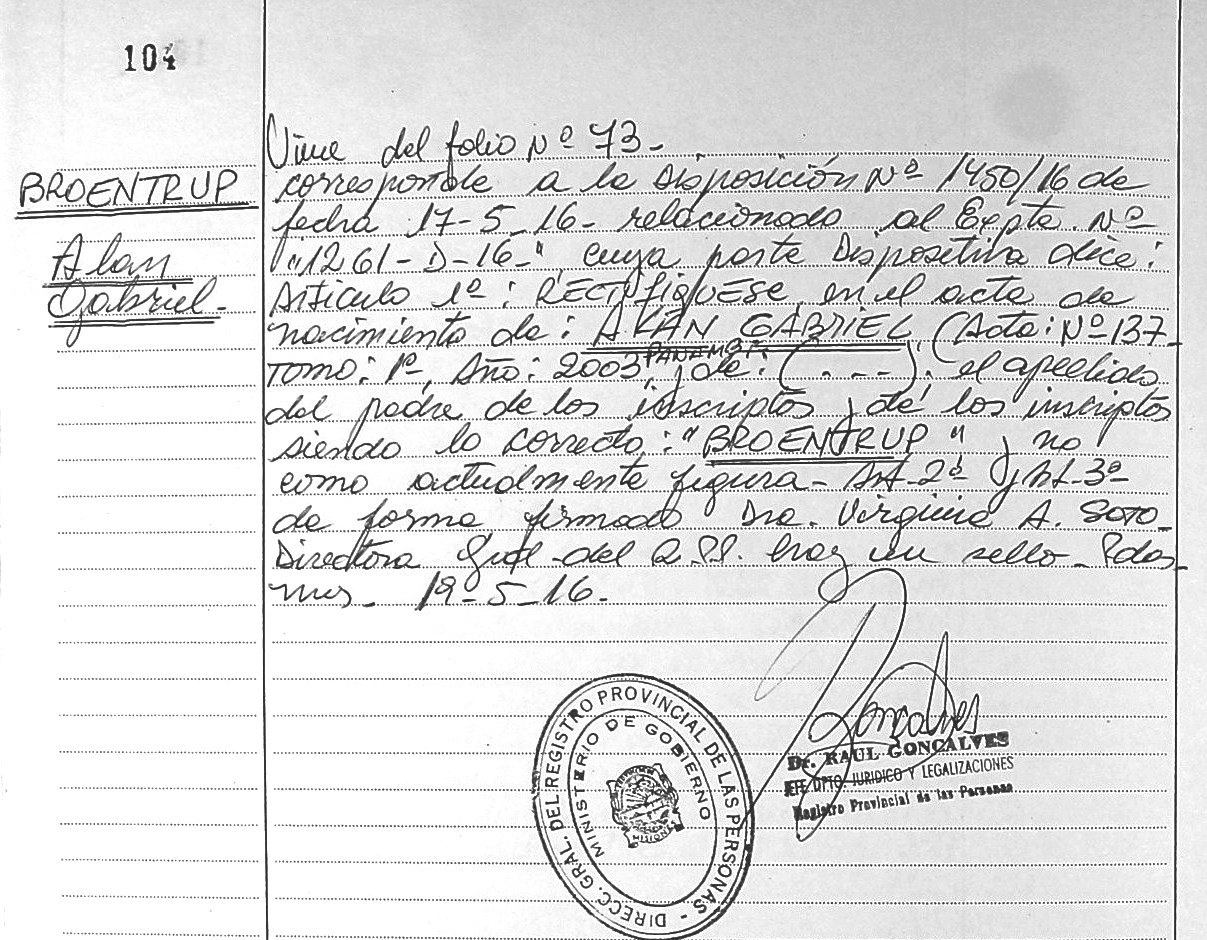 104
BROENTRUP
Alan
Gabriel-
Viene del folio Nº 73-
corresponde a la Disposición Nº 1450/16 de
fecha 17-5-16- relacionado al Expte. Nº
"1261-D-16-" cuya parte Dispositiva dice:
Articulo 1º: RECTIFIQUESE, en el acta de
nacimiento de: ALAN GABRIEL, (Acta: Nº 137
PANAMBI
Tomo: 1º, Año: 2003, y de: (...). el apellido
del padre de los inscriptos y de los inscriptos
siendo lo correcto: "BROENTRUP" y no
como actualmente figura- Art-2º y Art-3º
de forma firmado Dra. Virginia A. SOTO-
Directora Gral-del R.P.P. hay un sello- Pdas
mnes- 19-5-16-
DIRECC. GRAL. DEL REGISTRO PROVINCIAL DE LAS PERSONAS -
MINISTERIO DE GOBIERNO
MISIONES
Goncalves
Dr. RAUL GONCALVES
JEFE DPTO. JURIDICO Y LEGALIZACIONES
Registro Provincial de las Personas